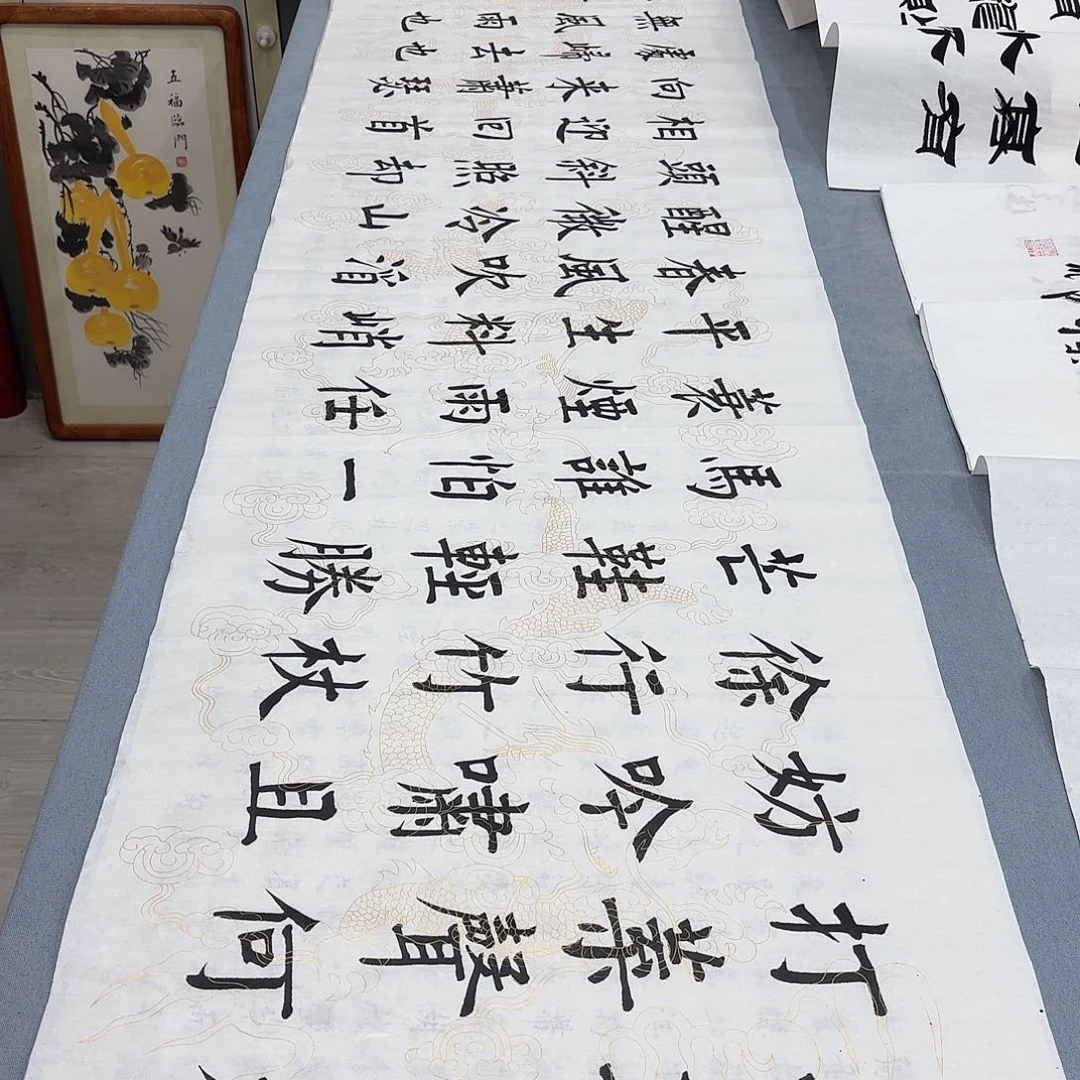 打葉聲何
妨吟嘯且
徐行竹杖
芒鞋輕勝
馬誰怕一
蓑煙雨任
平生料峭
春風吹酒
醒微冷山
頭斜照却
相迎回首
向来蕭瑟
處歸去也
無風雨也
五福臨門